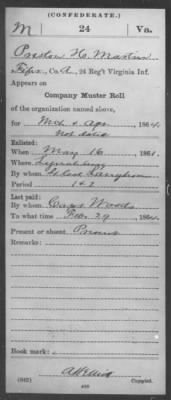 (CONFEDERATE.)
M 24 Va.
Preston H. Martin
Fifer, Co. A, 24 Reg't Virginia Inf.
Appears on
Company Muster Roll
of the organization named above,
for Mch & Apr, 1864.
not dated
Enlisted:
When May 16, 1861.
Where Lynchburg
By whom Langhorn
Period 1 & 2
Last paid:
By whom Capt Woods
To what time Feb 29, 1864.
Present or absent Present
Remarks:
Book mark:
(642)
Copyist.